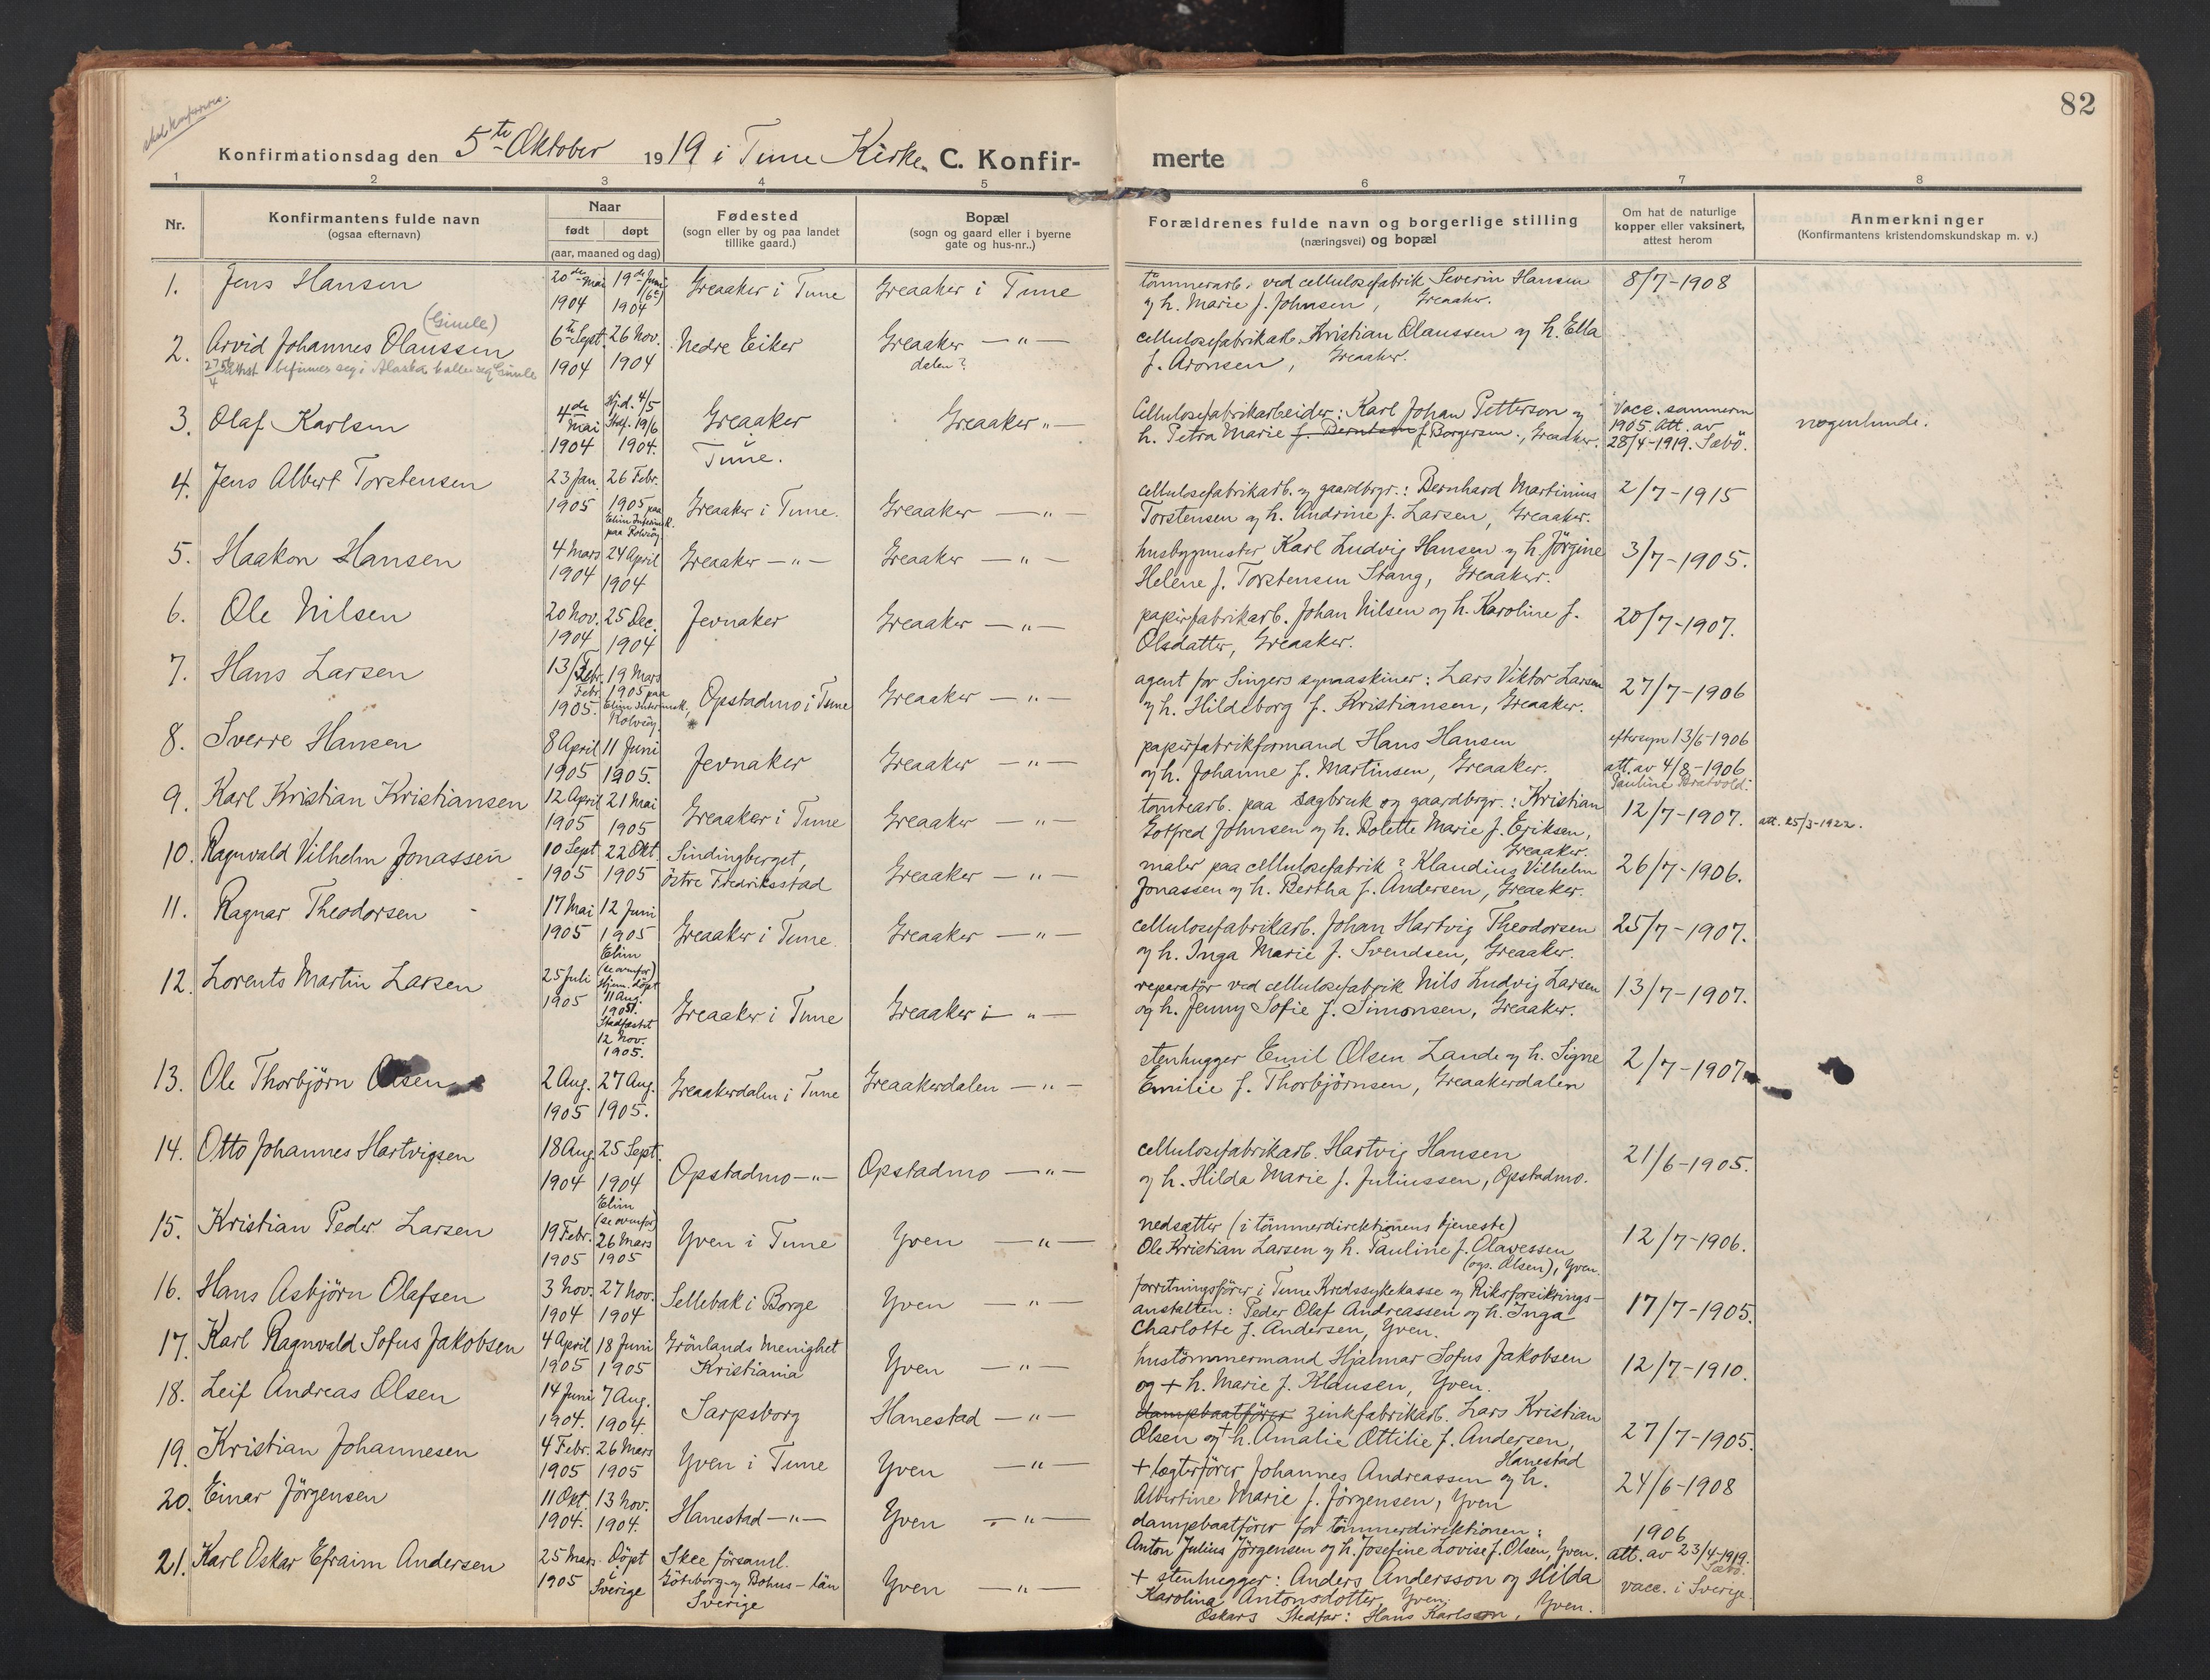 82
Konfirmationsdag den 5te Oktober 1919 i Tune Kirke. C. Konfir-
merte
1 2 3 4 5 6 7 8
Nr.
Konfirmantens fulde navn
(ogsaa efternavn)
Naar
født døpt
(aar, maaned og dag)
Fødested
(sogn eller by og paa landet
tillike gaard.)
Bopæl
(sogn og gaard eller i byerne
gate og hus-nr..)
Forældrenes fulde navn og borgerlige stilling
(næringsvei) og bopæl
Om hat de naturlige
kopper eller vaksinert,
attest herom
Anmerkninger
(Konfirmantens kristendomskundskap m. v.)
1. Jens Hansen 20de Mai 19de Juni Greaaker i Tune Greaaker i Tune tömmerarb. ved cellulosefabrik Severin Hansen 8/7-1908
1904 1904 og h. Marie f. Johnsen, Greaaker.
(Gimle)
2. Arvid Johannes Olaussen 6te Sept. 26 Nov. Nedre Eiker Greaaker —"— cellulosefabrikarb. Kristian Olaussen og h. Ella
befinner seg i Alaska kaller seg Gimle 1904 1904 dalen? f. Aronsen, Greaaker.
3. Olaf Karlsen 4de Mai Hj.d. 4/5 Stadf. 19/6 Greaaker Greaaker "— Cellulosefabrikarbeider: Karl Johan Petterson og Vacc. sommeren nogenlunde.
1904 1904. Tune. h. Petra Marie f. Berntsen f. Borgersen., Greaaker. 1905. Att. av
28/4-1919. Sæbö.
4. Jens Albert Torstensen 23 Jan. 26 Febr. Greaaker i Tune. Greaaker —"— cellulosefabrikarb. og gaardbrgr.: Bernhard Martinius 2/7-1915
1905 1905 paa Torstensen og h. Andrine f. Larsen, Greaaker.
paa Rolvsöy
5. Haakon Hansen 4 Mars 24 April Greaaker —"— Greaaker —"— husbygmester Karl Ludvig Hansen og h. Jörgine 3/7-1905.
1904 1904 Helene f. Torstensen Stang, Greaaker.
6. Ole Nilsen 20 Nov. 25 Dec. Jevnaker Greaaker —"— papirfabrikarb. Johan Nilsen og h. Karoline f. 20/7-1907.
1904 1904 Olsdatter, Greaaker.
7. Hans Larsen 13 Febr. 19 Mars Opstadmo i Tune Greaaker —"— agent for Singers symaskiner: Lars Viktor Larsen 27/7-1906
1905. 1905 paa Rolvsöy og h. Hildeborg f. Kristiansen, Greaaker.
8. Sverre Hansen 8 April 11 Juni Jevnaker Greaaker —"— papirfabrikformand Hans Hansen eftersyn 13/6-1906
1905 1905. og h. Johanne f. Martinsen, Greaaker. att. av 4/8-1906
9. Karl Kristian Kristiansen 12 April 21 Mai Greaaker i Tune Greaaker —"— tomtearb. paa sagbruk og gaardbrgr.: Kristian 12/7-1907. att. 25/3-1922.
1905 1905 Gotfred Johnsen og h. Bolette Marie f. Eriksen,
Greaaker.
10. Ragnvald Vilhelm Jonassen 10 Sept 22 Okt. Sindingberget, Greaaker —"— maler paa cellulosefabrik? Klaudius Vilhelm 26/7-1906.
1905 1905 östre Fredriksstad Jonassen og h. Bertha f. Andersen, Greaaker.
11. Ragnar Theodorsen 17 Mai 12 Juni Greaaker i Tune Greaaker —"— cellulosefabrikarb. Johan Hartvig Theodorsen 25/7-1907.
1905 1905 Elim (se ovenfor) og h. Inga Marie f. Svendsen, Greaaker.
12. Lorents Martin Larsen 25 Juli Hjem. döpt 11 Aug. Greaaker i Tune Greaaker i —"— reparatör ved cellulosefabrik Nils Ludvig Larsen 13/7-1907.
1905 1905. Stadfæstet 12 Nov. 1905. og h. Jenny Sofie f. Simonsen, Greaaker.
13. Ole Thorbjörn Olsen 2 Aug. 27 Aug. Greaakerdalen i Tune Greaakerdalen —"— stenhugger Emil Olsen Lande og h. Signe 2/7-1907
1905 1905. Emilie f. Thorbjörnsen, Greaakerdalen
14. Otto Johannes Hartvigsen 18 Aug. 25 Sept. Opstadmo —"— Opstadmo —"— cellulosefabrikarb. Hartvig Hansen 21/6-1905.
1904 1904 og h. Hilda Marie f. Juliussen, Opstadmo.
15. Kristian Peder Larsen 19 Febr. Elim (se ovenfor) 26 Mars Yven i Tune Yven —"— nedsætter (i tömmerdirektionens tjeneste) 12/7-1906.
1905 1905 Ole Kristian Larsen og h. Pauline f. Olavessen
(ogs. Olsen), Yven.
16. Hans Asbjörn Olafsen 3 Nov. 27 Nov. Sellebak i Borge Yven —"— forretningsförer i Tune Kredssykekasse og Riksforsikrings- 17/7-1905.
1904 1904 anstalten: Peder Olaf Andreassen og h. Inga
Charlotte f. Andersen, Yven.
17. Karl Ragnvald Sofus Jakobsen 4 April 18 Juni Grönlands Menighet Yven —"— hustömmermand Hjalmar Sofus Jakobsen 12/7-1910.
1905 1905 Kristiania og + h. Marie f. Klausen, Yven.
18. Leif Andreas Olsen 14 Juni 7 Aug. Sarpsborg Hanestad —"— dampbaatförer zinkfabrikarb. Lars Kristian 27/7-1905.
1904. 1904. Olsen og + h. Amalie Ottilie f. Andersen,
Hanestad
19. Kristian Johannesen 4 Febr. 26 Mars Yven i Tune Yven —"— + lægterförer Johannes Andreassen og h. 24/6-1908
1905 1905 Albertine Marie f. Jörgensen, Yven
20. Einar Jörgensen 11 Okt. 13 Nov. Hanestad —"— Yven —"— dampbaatförer for tömmerdirektionen: 1906
1904. 1904. Anton Julius Jörgensen og h. Josefine Lovise f. Olsen, Yven. att. av 23/4-1919.
Sæbö.
21. Karl Oskar Efraim Andersen 25 Mars Döpt i Skee församl. Yven —"— + stenhugger: Anders Andersson og Hilda vacc. i Sverige
1905 Sverige Göteborg og Bohus-län Karolina Antonsdotter, Yven.
Sverige Oskars Stedfar: Hans Karlsson, Yven.